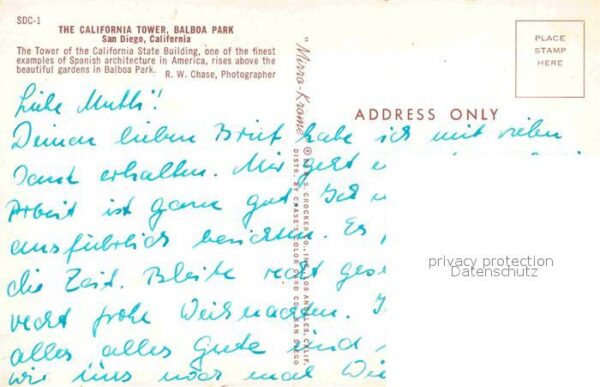 SDC-1
THE CALIFORNIA TOWER, BALBOA PARK
San Diego, California
The Tower of the California State Building, one of the finest
examples of Spanish architecture in America, rises above the
beautiful gardens in Balboa Park. R. W. Chase, Photographer
PLACE
STAMP
HERE
ADDRESS ONLY
"Mirro-Krome"
DISTR. BY CHASE'S COLOR CARD CO., SAN DIEGO
Liebe Mutti!
Deinen lieben Brief habe ich mit vielen
Dank erhalten. Mir geht
Arbeit ist ganz gut.
ausführlich berichten. Es
die Zeit. Bleibe recht
recht frohe Weihnachten.
alles alles Gute und
wir uns noch mal
privacy protection
Datenschutz